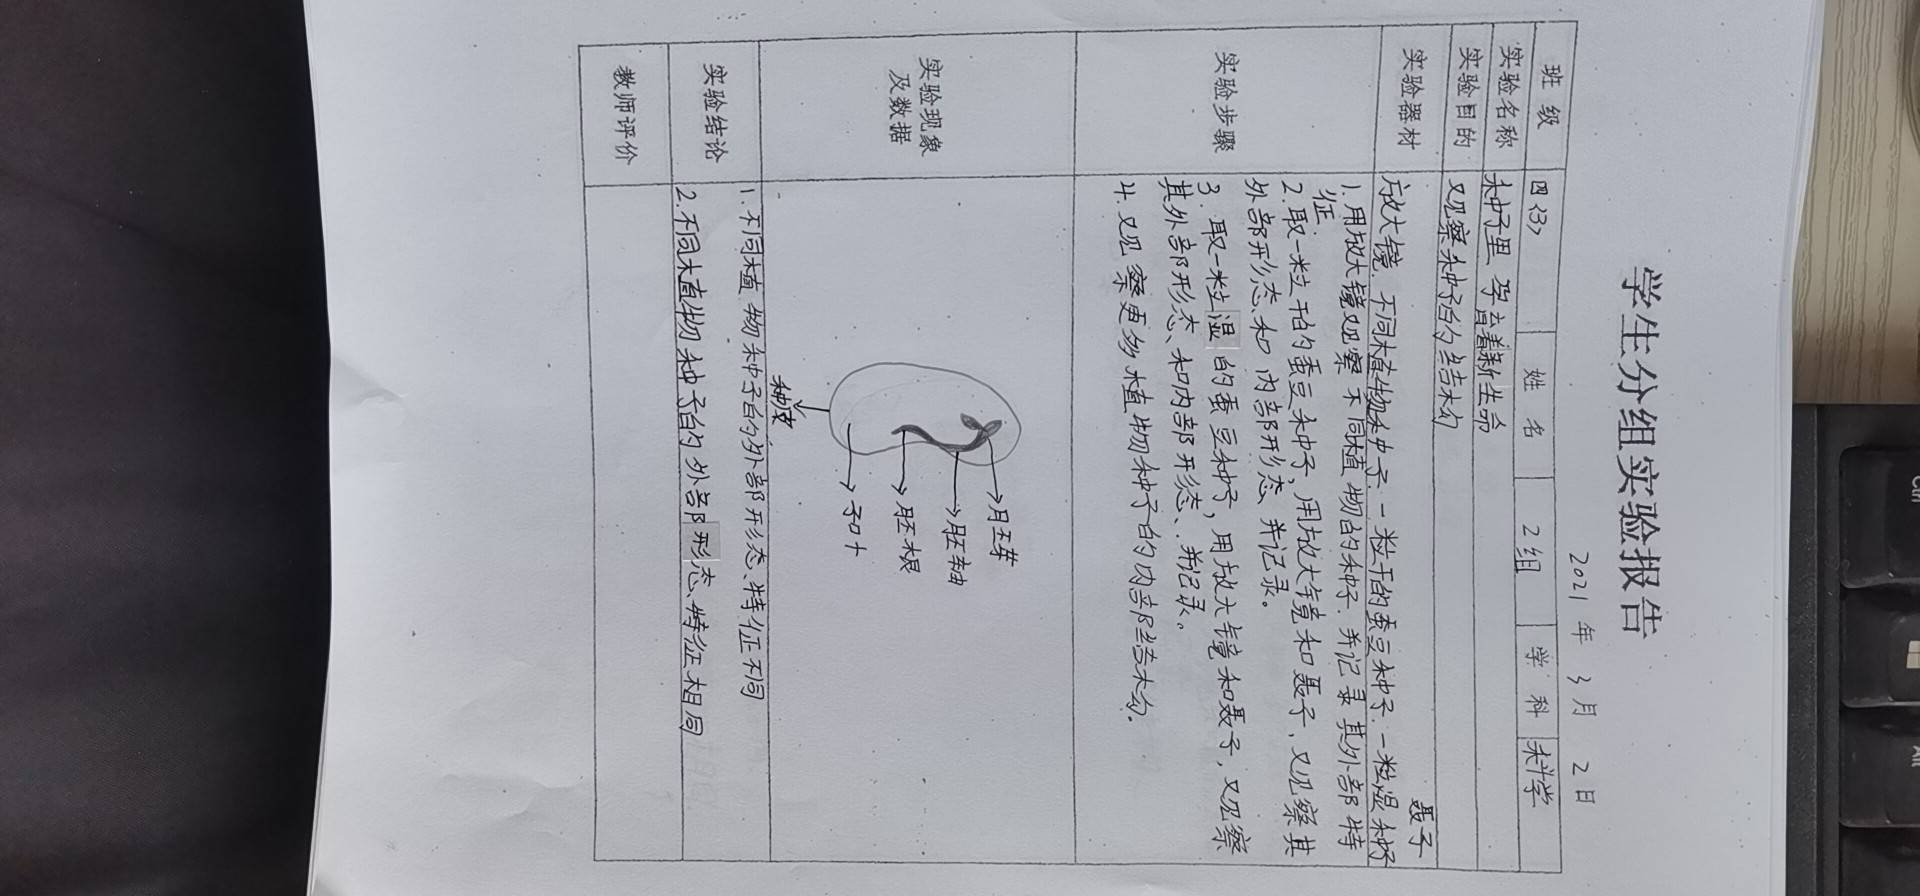 学生分组实验报告
2021 年 3 月 2 日
班 级 四(3) 姓 名 2组 学 科 科学
实验名称 种子里孕育着新生命
实验目的 观察种子的结构
实验器材 放大镜 不同植物种子 一粒干的蚕豆种子 一粒湿种子
聂子
实验步骤
1.用放大镜观察不同植物的种子.并记录其外部特
征.
2.取一粒干的蚕豆种子,用放大镜和聂子,观察其
外部形态和内部形态 并记录。
3.取一粒湿的蚕豆种子,用放大镜和聂子,观察
其外部形态、和内部形态、并记录。
4.观察更多植物种子的内部结构.
实验现象
及数据
胚芽
胚轴
胚根
子叶
种皮
实验结论
1.不同植物种子的外部形态、特征不同
2.不同植物种子的外部形态、特征相同
教师评价
Ctrl
Alt